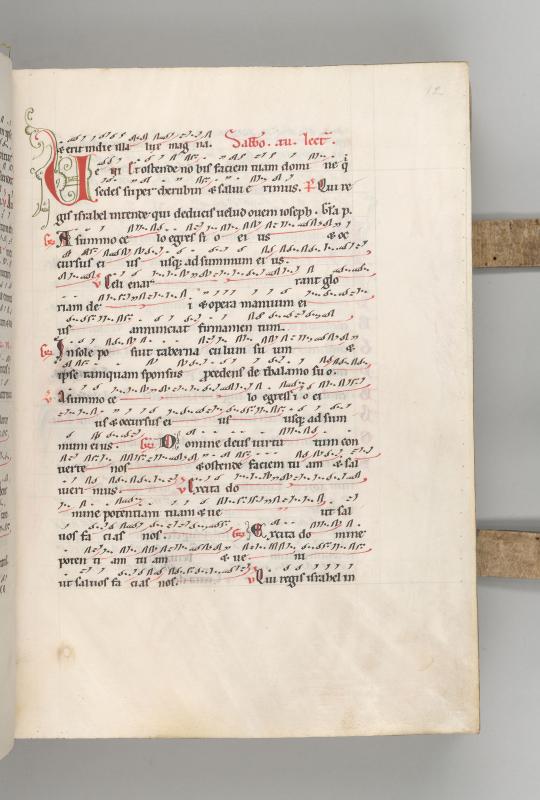 12
& erit in die illa lux mag na. Sabbo. iiii. lect.
Ve ni & ostende no bis faciem tuam domi ne q̇
sedes super cherubin & salui e rimus. P̄ Qui re
gis israhel intende qui deducis uelud ouem ioseph.
A summo ce lo egres si o ei us & oc
cursus ei us usq; ad summum ei us.
V Celi enar rant glo
riam de i & opera manuum ei
us annunciat firmamen tum.
In sole po suit taberna culum su um &
ipse tamquam sponsus procedens de thalamo su o.
V A summo ce lo egressi o ei
us & occursus ei us usq; ad sum
mum ei us. Domine deus uirtu tum con
uerte nos & ostende faciem tu am & sal
ui eri mus. V Excita do
mine potentiam tuam & ue ut sal
uos fa cias nos. Excita do mine
poten ti am tu am & ue ni
ut saluos fa cias nos. V Qui regis israhel in